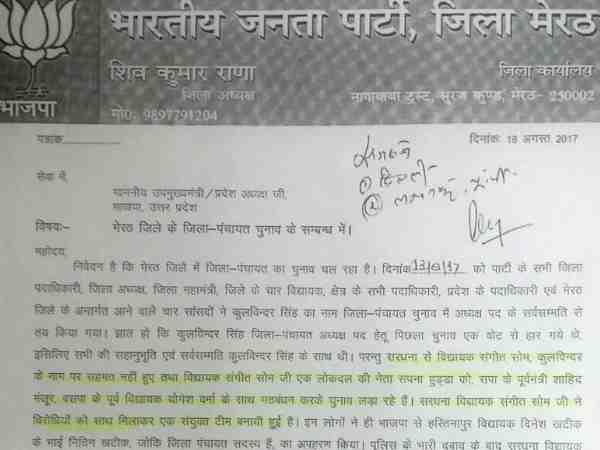 भारतीय जनता पार्टी, जिला मेरठ
शिव कुमार राणा
जिला अध्यक्ष
मो0: 9897791204
भाजपा
जिला कार्यालय
ट्रस्ट, सूरज कुण्ड, मेरठ- 250002
पत्रांक
दिनांक: 18 अगस्त 2017
सेवा में,
माननीय उपमुख्यमंत्री/प्रदेश अध्यक्ष जी,
भाजपा, उत्तर प्रदेश
विषय:- मेरठ जिले के जिला-पंचायत चुनाव के सम्बन्ध में।
महोदय,
निवेदन है कि मेरठ जिले में जिला-पंचायत का चुनाव चल रहा है। दिनांक को पार्टी के सभी जिला
पदाधिकारी, जिला अध्यक्ष, जिला महामंत्री, जिले के चार विद्यायक, क्षेत्र के सभी पदाधिकारी, प्रदेश के पदाधिकारी एवं मेरठ
जिले के अन्तर्गत आने वाले चार सांसदों ने कुलविन्दर सिंह का नाम जिला-पंचायत चुनाव में अध्यक्ष पद के सर्वसम्मति से
तय किया गया। ज्ञात हो कि कुलविन्दर सिंह जिला-पंचायत अध्यक्ष पद हेतू पिछला चुनाव एक वोट से हार गये थे,
इसिलिए सभी की सहानुभूति एवं सर्वसम्मति कुलविन्दर सिंह के साथ थी। परन्तु सरधना से विद्यायक संगीत सोम, कुलविन्दर
के नाम पर सहमत नहीं हुए तथा विद्यायक संगीत सोम जी एक लोकदल की नेता सपना हुड्डा को, सपा के पूर्वमंत्री शाहिद
मंजूर, बसपा के पूर्व विद्यायक योगेश वर्मा के साथ गठबंधन करके चुनाव लड़ा रहे हैं। सरधना विद्यायक संगीत सोम जी ने
विरोधियों को साथ मिलाकर एक संयुक्त टीम बनायी हुई है। इन लोगों ने ही भाजपा से हस्तिनापुर विद्यायक दिनेश खटीक
के भाई नितिन खटीक, जोकि जिला पंचायत सदस्य हैं, का अपहरण किया। पुलिस के भारी दबाव के बाद सरधना विद्यायक